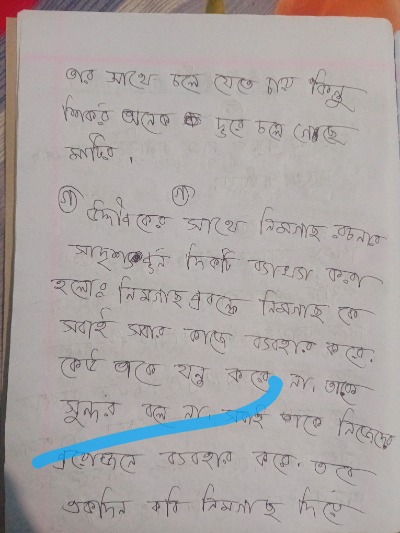 তার সাথে চলে যেতে চায় কিন্তু
শিকর অনেক দূরে চলে গেছে
মাটির।
গ গ
উদ্দীপকের সাথে নিমগাছ রচনার
সাদৃশ্যপূর্ন দিকটি ব্যাখ্যা করা
হলোঃ নিমগাছ প্রবন্ধে নিমগাছ কে
সবাই সবার কাজে ব্যবহার করে।
কেউ তাকে যত্ন করে না, তাকে
সুন্দর বলে না, সবাই তাকে নিজেদের
প্রয়োজনে ব্যবহার করে। তবে
একদিন কবি নিমগাছ দিয়ে